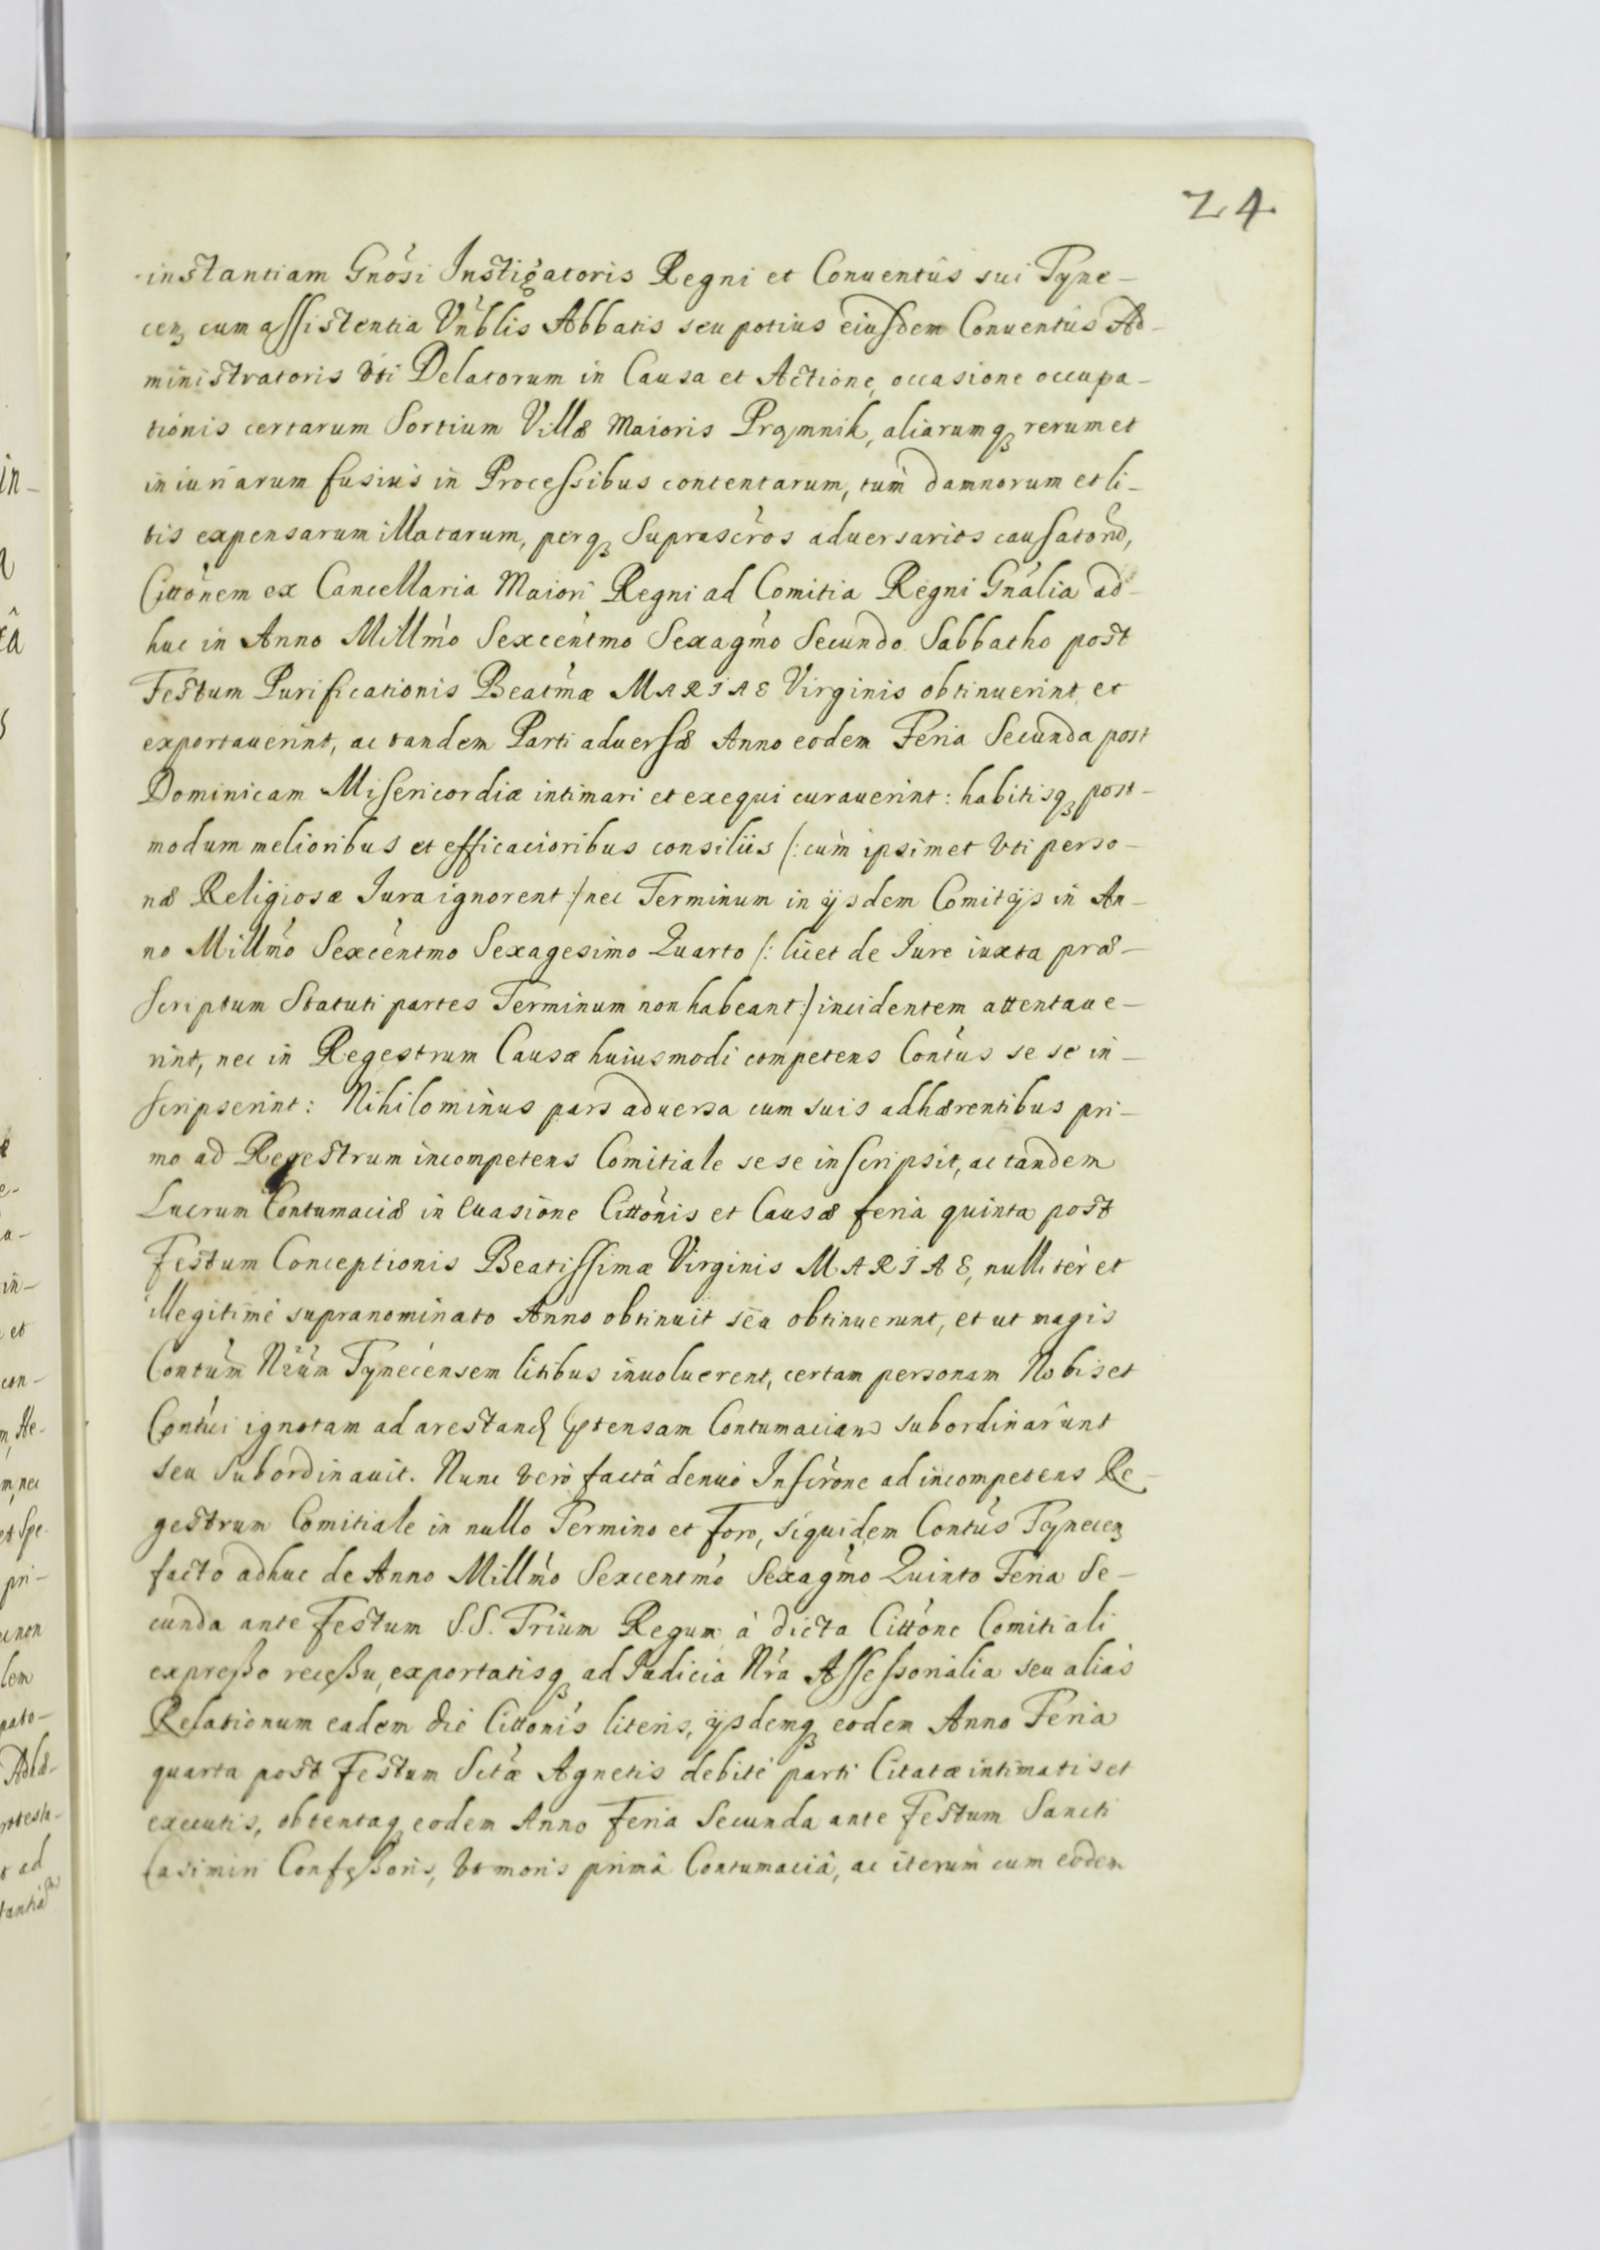 24
instantiam Gnosi Instigatoris Regni et Conuentûs sui Tyne-
cen cum assistentia Vnblis Abbatis seu potius eiusdem Conuentus Ad-
ministratoris vti Delatorum in Causa et Actione, occasione occupa-
tionis certarum Sortium Villæ Maioris Prąmnik, aliarumq rerum et
iniuriarum fusius in Processibus contentarum, tum damnorum et li-
tis expensarum illatarum, perq Suprascros aduersarios causatorũ,
Cittonem ex Cancellaria Maiori Regni ad Comitia Regni Gnalia ad-
huc in Anno Millmo Sexcentmo Sexagmo Secundo Sabbatho post
Festum Purificationis Beatmæ MARIAE Virginis obtinuerint et
exportauerint, ac tandem Parti aduersæ Anno eodem Feria Secunda post
Dominicam Misericordiæ intimari et exequi curauerint: habitisq post-
modum melioribus et efficacioribus consiliis /: cum ipsimet vti perso-
næ Religiosæ Iura ignorent :/ nec Terminum in ijsdem Comitijs in An-
no Millmo Sexcentmo Sexagesimo Quarto /: licet de Iure iuxta præ-
scriptum Statuti partes Terminum non habeant :/ incidentem attentaue-
rint, nec in Regestrum Causæ huiusmodi competens Contus se se in-
scripserint: Nihilominus pars aduersa cum suis adhærentibus pri-
mo ad Regestrum incompetens Comitiale se se inscripsit, ac tandem
Lucrum Contumaciæ in Euasione Cittonis et Causæ feria quinta post
Festum Conceptionis Beatissimæ Virginis MARIAE, nulliter et
illegitimè supranominato Anno obtinuit seu obtinuerunt, et ut magis
Contum Nrum Tynecensem litibus inuoluerent, certam personam Nobis et
Contui ignotam ad arestand ptensam Contumaciam subordinarunt
seu subordinauit. Nunc verò factâ denuò Inscrone ad incompetens Re-
gestrum Comitiale in nullo Termino et Foro, siquidem Contus Tynecen
facto adhuc de Anno Millmo Sexcentmo Sexagmo Quinto Feria Se-
cunda ante Festum S.S. Trium Regum à dicta Cittone Comitiali
expresso recessu, exportatisq ad Iudicia Nra Assessorialia seu alias
Relationum eadem die Cittonis literis, ijsdemq eodem Anno Feria
quarta post Festum Sctæ Agnetis debitè parti Citatæ intimatis et
executis, obtentaq eodem Anno Feria Secunda ante Festum Sancti
Casimiri Confessoris, vt moris primâ Contumaciâ, ac iterum cum eodem